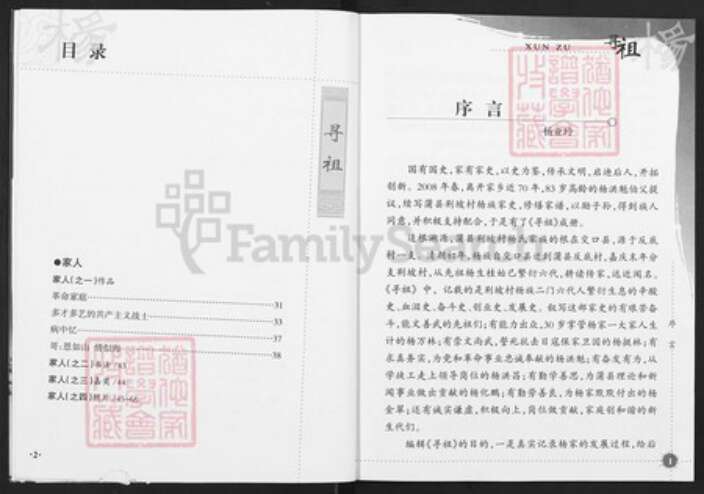 目录
寻祖
●家人
家人(之一)作品
革命家庭……31
多才多艺的共产主义战士……33
病中忆……37
哥:恩如山 情似海……38
家人(之二)
家人(之三)
家人(之四)照片
·2·
XUN ZU
寻祖
序言
杨业玲
国有国史,家有家史,以史为鉴,传承文明,启迪后人,开拓
创新。2008年春,离开家乡近70年,83岁高龄的杨洪魁伯父提
议,续写蒲县荆坡村杨族家史,修缮家谱,以励子孙,得到族人
同意,并积极支持配合,于是有了《寻祖》成册。
追根溯源,蒲县荆坡村杨氏家族的根在交口县,源于反底
村一支。清朝初年,杨族自交口县迁到蒲县反底村,嘉庆末年分
支荆坡村,从先祖杨生桂始已繁衍六代,耕读传家,远近闻名。
《寻祖》中,记载的是荆坡村杨族二门六代人繁衍生息的辛酸
史、血泪史、奋斗史、创业史、发展史。叙写这部家史的有艰苦奋
斗,能文善武的先祖们;有能力出众,30岁掌管杨家一大家人生
计的杨万林;有崇文尚武,誓死抗击日寇保家卫国的杨挺林;有
求真务实,为党和革命事业忠诚奉献的杨洪魁;有奋发有为,从
学徒工走上领导岗位的杨洪昌;有勤学善思,为蒲县理论和新
闻事业做出贡献的杨化鹏;有勤劳善良,为杨家默默付出的杨
金翠;还有诚实谦虚,积极向上,岗位做贡献,家庭创和谐的新
生代们。
编辑《寻祖》的目的,一是真实记录杨家的发展过程,给后
序言
1
FamilySearch